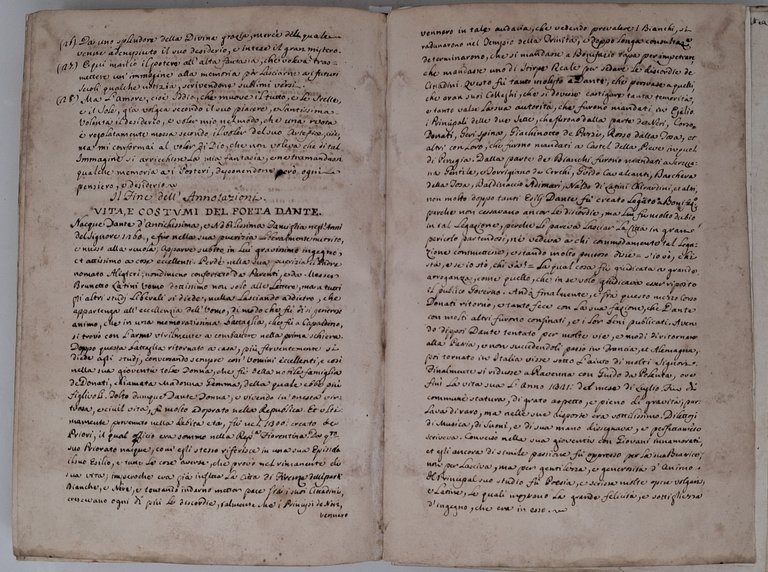 (126) Da uno splendore della Divina grazia, mercè della quale
venne adempiuto il suo desiderio, e inteso il gran mistero.
(125) E qui mancò il potere all'alta fantasia, che voleva tras=
mettere un' immagine alla memoria per lasciarne a' futuri
Secoli qualche notizia, scrivendone sublimi versi.
(126) Ma l'Amore, cioè Iddio, che muove il tutto, e le Stelle,
e il Sole, già volgea secondo il suo piacere, e Santissima
Volontà il desiderio, e voler mio nel modo, che una ruota
è regolatamente mossa secondo il voler del suo Artefice,
mi conformai al voler di Dio, che non voleva che di tal
Immagine si arricchisse la mia fantasia, e ne tramandassi
qualche memoria a' Posteri, deponendone però, ogni
pensiero, e desiderio.
Il Fine dell' Annotazioni.
VITA, E COSTUMI DEL POETA DANTE.
Nacque Dante d'Antichissima, e Nobilissima Famiglia negl'Anni
del Signore 1260, e fu nella sua puerizia liberalmente nutrito,
e messo alla scuola; Apparve subito in lui gravissimo ingegno,
et attissimo a cose eccellenti. Perdè nella sua puerizia il Padre
nomato Aligeri; nondimeno confortato da' Parenti, e da Messer
Brunetto Latini Uomo dottissimo non solo alle Lettere, ma a tutti
gli altri studj Liberali si diede, nulla lasciando addietro, che
appartenga all' eccellenza dell'Uomo, di modo che fù di sì generoso
animo, che in una memoratissima battaglia, che fù a Campaldino,
si trovò con l'arme vivilmente a combattere nella prima schiera.
Doppo questa battaglia ritornato a casa, più ferventemente si
diede agli studj, conversando sempre con Uomini eccellenti, e così
nella sua gioventù tolse Donna, che fù della nobile famiglia
de' Donati, chiamata Madonna Gemma, della quale ebbe più
Figlivoli. Tolto dunque Dante Donna, e vivendo in onesta vir=
tuosa, e civil vita, fù molto adoprato nella Republica. Et ulti=
mamente pervenuto nella debita età, fù nel 1300 creato de'
Priori, il qual officio era sommo nella Rep.ca Fiorentina. Da q.to
suo Priorato nacque, come egli stesso riferisce in una sua Epistola
il suo Esilio, e tutte le cose averse, che provò nel rimanente di
sua vita; impercioche era già infetta la Città di Firenze dalle parti
Bianche, e Nere, e tentando indarno metter pace fra i suoi Cittadini,
crescevano ogni dì più le discordie, talmente che i Principi de' Neri,
vennero
vennero in tale audacia, che vedendo prevalere i Bianchi, si
radunorono nel Tempio della Trinità, e doppo longa consulta
determinarono, che si mandasse a Bonifazio Papa per impetrare
che mandasse uno di Stirpe Reale per sedare le discordie de'
Cittadini. Questo fù tanto molesto a Dante, che persuase a quelli,
che eran suoi Colleghi, che si dovesse castigare tanta temerità,
e tanto valse la sua autorità, che furono mandati in Esilio
i Principali delle due Sette, che furono dalla parte de' Neri, Corso
Donati, Geri Spina, Giachinotto de' Pazzi, Rosso dalla Tosa, et
altri con loro, che furono mandati a Castel della Pieve in quel
di Perugia. Dalla parte de' Bianchi furono mandati a Serezz=
na Gentile, e Torrigiano de' Cerchi, Guido Cavalcanti, Baschera
della Tosa, Baldinaccio Adimari, Naldo di Lottini Gherardini, et altri,
non molto doppo tanti Esilj Dante fù creato Legato a Bonifazio,
perche non cessavano ancor le discordie, ma lui fù molto dubio
in tal Legazione, perche li parve a lasciar la Città in gran
pericolo partendosi, nè vedeva a chi commodamente tal Lega=
zione commettere, e stando molto penoso disse: s'io vò, chi
stà, e se io stò, chi và? = La qual cosa fù giudicata a grande
arroganza, come quello, che in se volesse giudicare esser riposto
il publico Governo. Andò finalmente, e fra questo mezzo Corso
Donati ritornò, e tanto fece con la sua fazione, che Dante
con molti altri furono confinati, e i lor beni publicati. Aven=
do dipoi Dante tentato per molte vie, e modi di ritornare
alla Patria, e non succedendoli passò in Francia, et Alemagna,
poi tornato in Italia visse sotto l'aiuto di molti Signori.
Finalmente si ridusse a Ravenna con Guido da Polenta, ove
finì la vita sua l'Anno 1321: del mese di Luglio. Fu di
commune statura, di grato aspetto, e pieno di gravità, par=
lava di raro, ma nelle sue risposte era sottilissimo. Dilettossi
di Musica, di Suoni, e di sua mano disegnava, e perfettamente
scriveva. Conversò nella sua gioventù con Giovani innamorati,
et egli ancora di simile passione fù oppresso per la sua Beatrice,
non per lascivia, ma per gentilezza, e generosità d'Animo.
Il Principal suo studio fù Poesia, e scrisse molte opere volgari,
e Latine, le quali mostrano la grande felicità, e sottigliezza
d'ingegno, che era in esso.